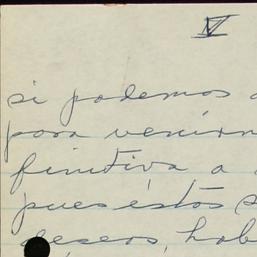 IV
si podemos
para
finitiva a
pues éstos
deseos, hab